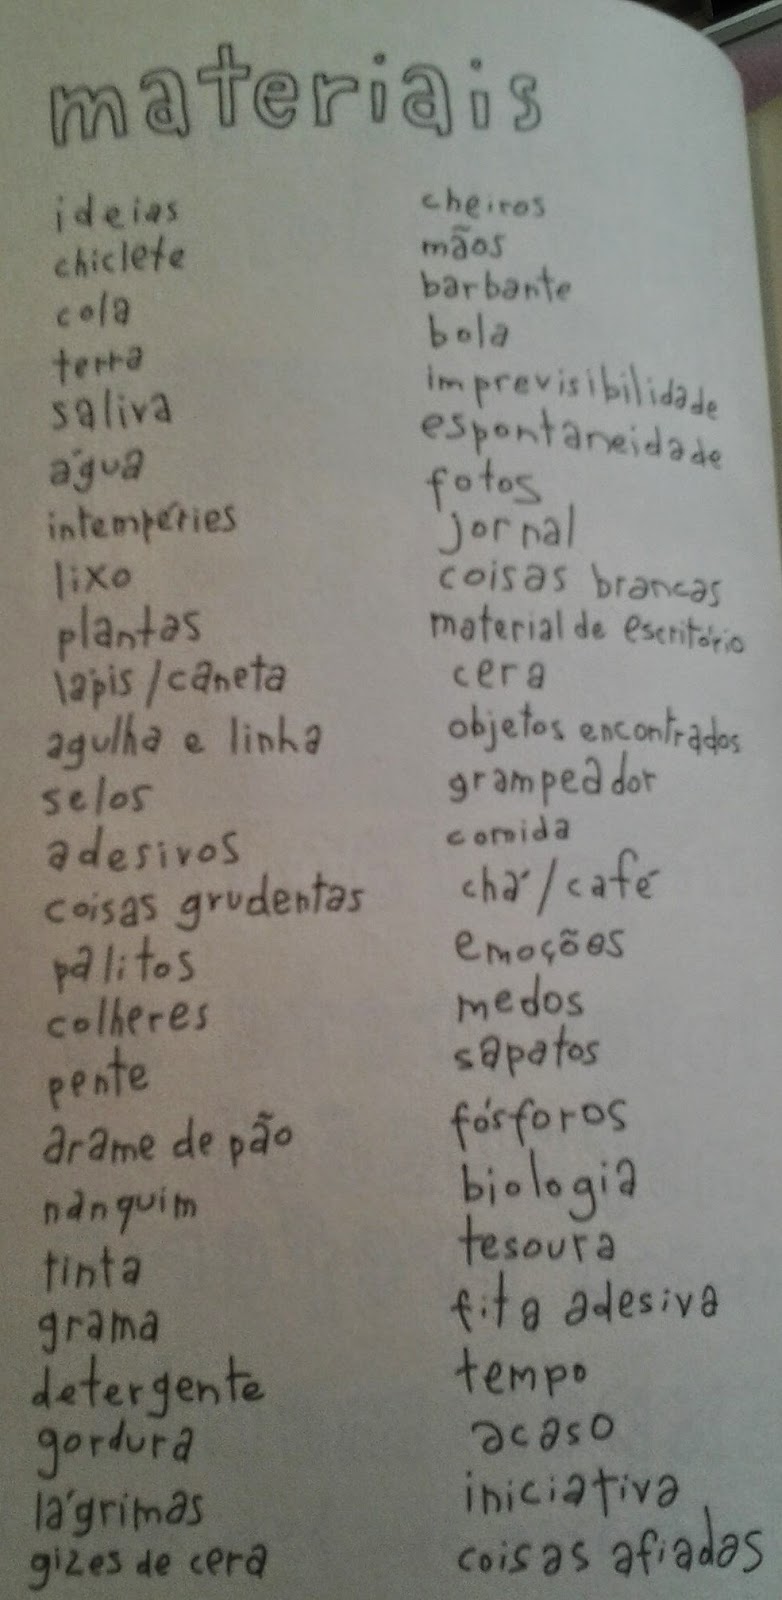 materiais
ideias
chiclete
cola
terra
saliva
água
intempéries
lixo
plantas
lápis/caneta
agulha e linha
selos
adesivos
coisas grudentas
palitos
colheres
pente
arame de pão
nanquim
tinta
grama
detergente
gordura
lágrimas
gizes de cera
cheiros
mãos
barbante
bola
imprevisibilidade
espontaneidade
fotos
jornal
coisas brancas
material de escritório
cera
objetos encontrados
grampeador
comida
chá/café
emoções
medos
sapatos
fósforos
biologia
tesoura
fita adesiva
tempo
acaso
iniciativa
coisas afiadas